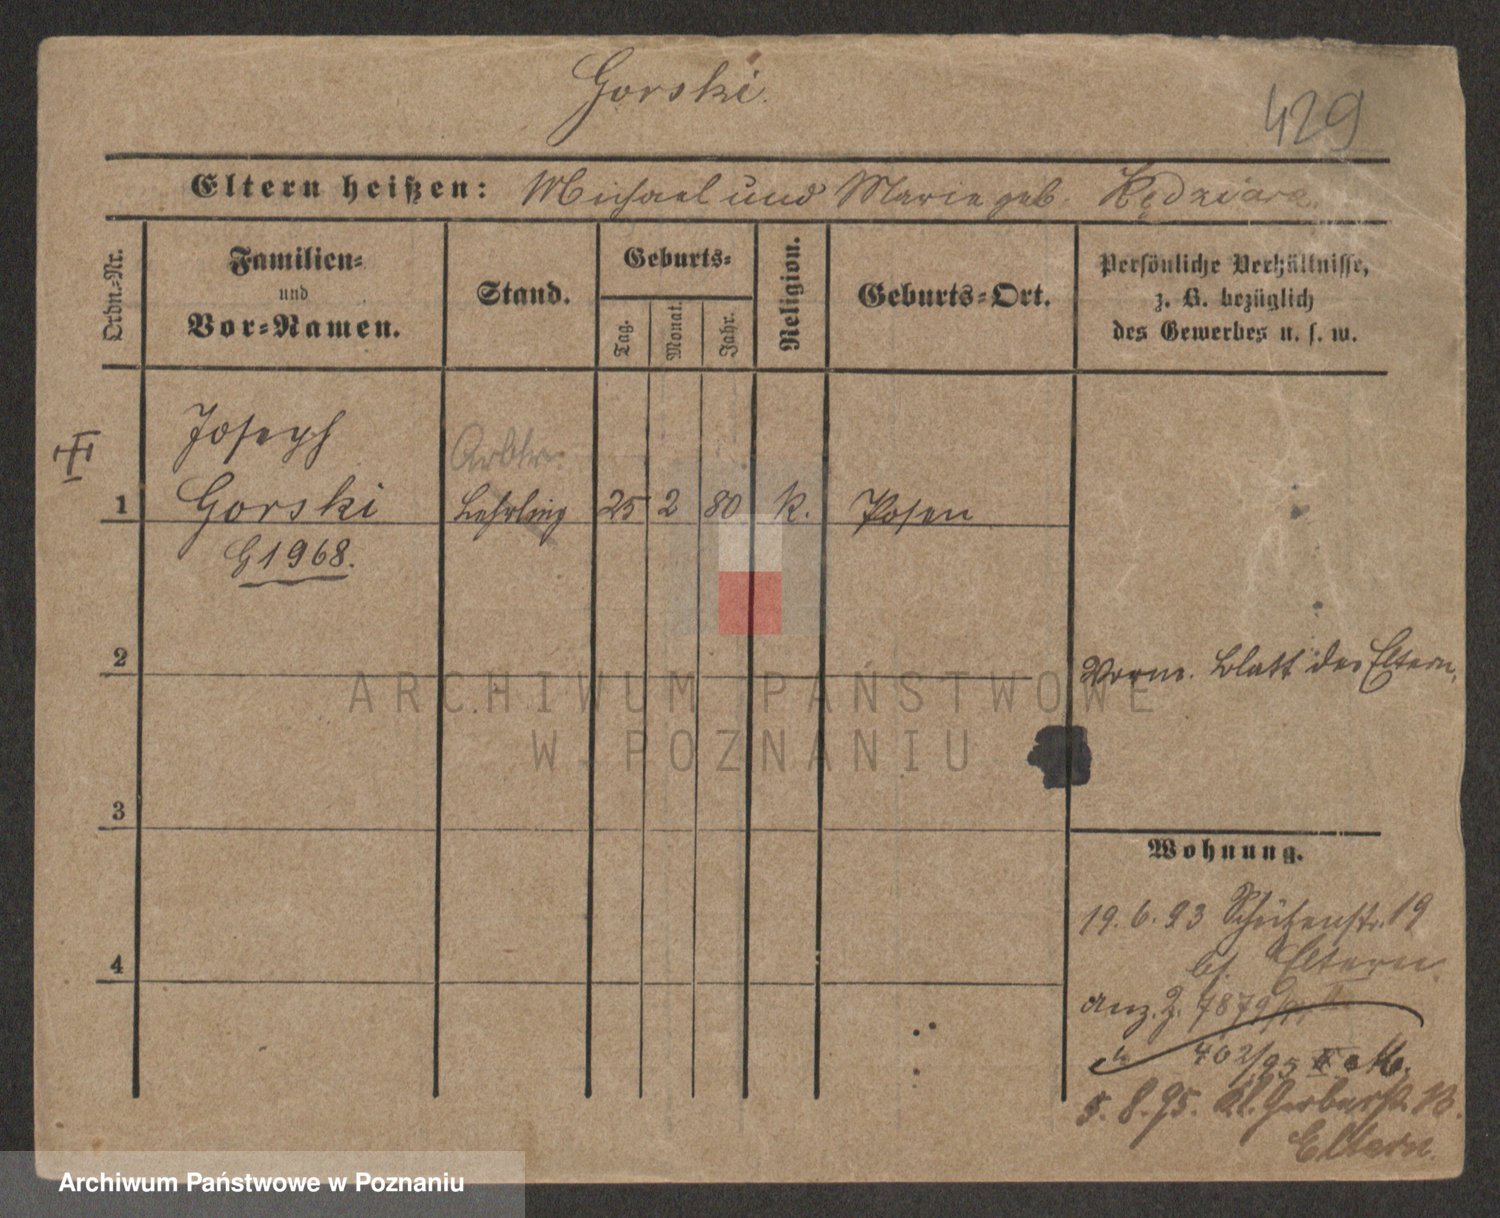 Gorski.
429
Eltern heißen: Michael und Marie geb. Kędziora.
Ordn.-Nr.
Familien-
und
Vor-Namen.
Stand.
Geburts-
Tag.
Monat.
Jahr.
Religion.
Geburts-Ort.
Persönliche Verhältnisse,
z. B. bezüglich
des Gewerbes u. s. w.
Joseph
1 Gorski Lehrling 25 2 80 k. Posen
G 1968.
2
Blatt der Eltern.
3
Wohnung.
19. 6. 93 Schützenstr. 19
bei Eltern.
4
anz. 2. 7879
402/95
5. 8. 95. Kl. Gerberstr.
Eltern.
ARCHIWUM PAŃSTWOWE
W POZNANIU
Archiwum Państwowe w Poznaniu